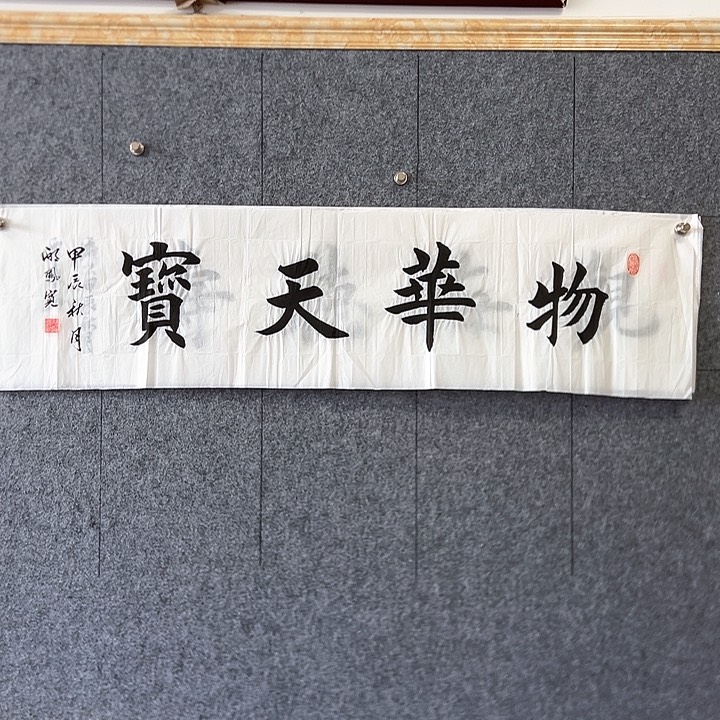 物華天寶
甲辰秋月